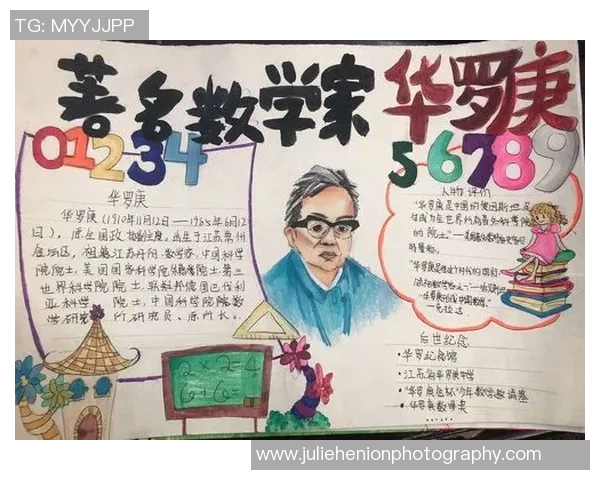 TG: MYYJJPP
著名数学家 华罗庚
01234
56789
华罗庚
华罗庚(1910年11月12日——1985年6月12
日),原全国政协副主席。出生于江苏常州
金坛区,祖籍江苏丹阳。数学家,中国科学
院院士,美国国家科学院外籍院士,第三
世界科学院院士,联邦德国巴伐利
亚科学院院士,中国科学院数
学研究所研究员、原所长。
人物评价
“华罗庚是中国的爱因斯坦,足
够成为全世界所有著名科学院
的院士。”
后世纪念
·华罗庚纪念馆
·江苏省华罗庚中学
·“华罗庚金杯”少年数学邀请赛
·华罗庚数学奖
2×2=4
6+6=
www.juliehenionphotography.com